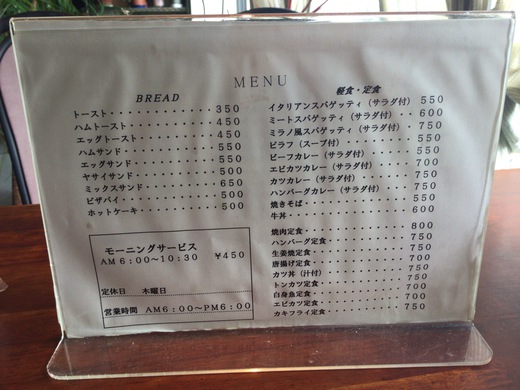 MENU
BREAD
トースト・・・・・・・・・・・350
ハムトースト・・・・・・・・・450
エッグトースト・・・・・・・・450
ハムサンド・・・・・・・・・・550
エッグサンド・・・・・・・・・550
ヤサイサンド・・・・・・・・・500
ミックスサンド・・・・・・・・650
ピザパイ・・・・・・・・・・・500
ホットケーキ・・・・・・・・・500
モーニングサービス
AM6:00~10:30 ¥450
定休日 木曜日
営業時間 AM6:00~PM6:00
軽食・定食
イタリアンスパゲッティ(サラダ付) 550
ミートスパゲッティ(サラダ付)・・600
ミラノ風スパゲッティ(サラダ付) 750
ピラフ(スープ付)・・・・・・・550
ビーフカレー(サラダ付)・・・・550
エビカツカレー(サラダ付)・・・700
カツカレー(サラダ付)・・・・・750
ハンバーグカレー(サラダ付)・・750
焼きそば・・・・・・・・・・・550
牛丼・・・・・・・・・・・・・600
焼肉定食・・・・・・・・・・・800
ハンバーグ定食・・・・・・・・750
生姜焼定食・・・・・・・・・・750
唐揚げ定食・・・・・・・・・・700
カツ丼(汁付)・・・・・・・・750
トンカツ定食・・・・・・・・・700
白身魚定食・・・・・・・・・・700
エビカツ定食・・・・・・・・・700
カキフライ定食・・・・・・・・750